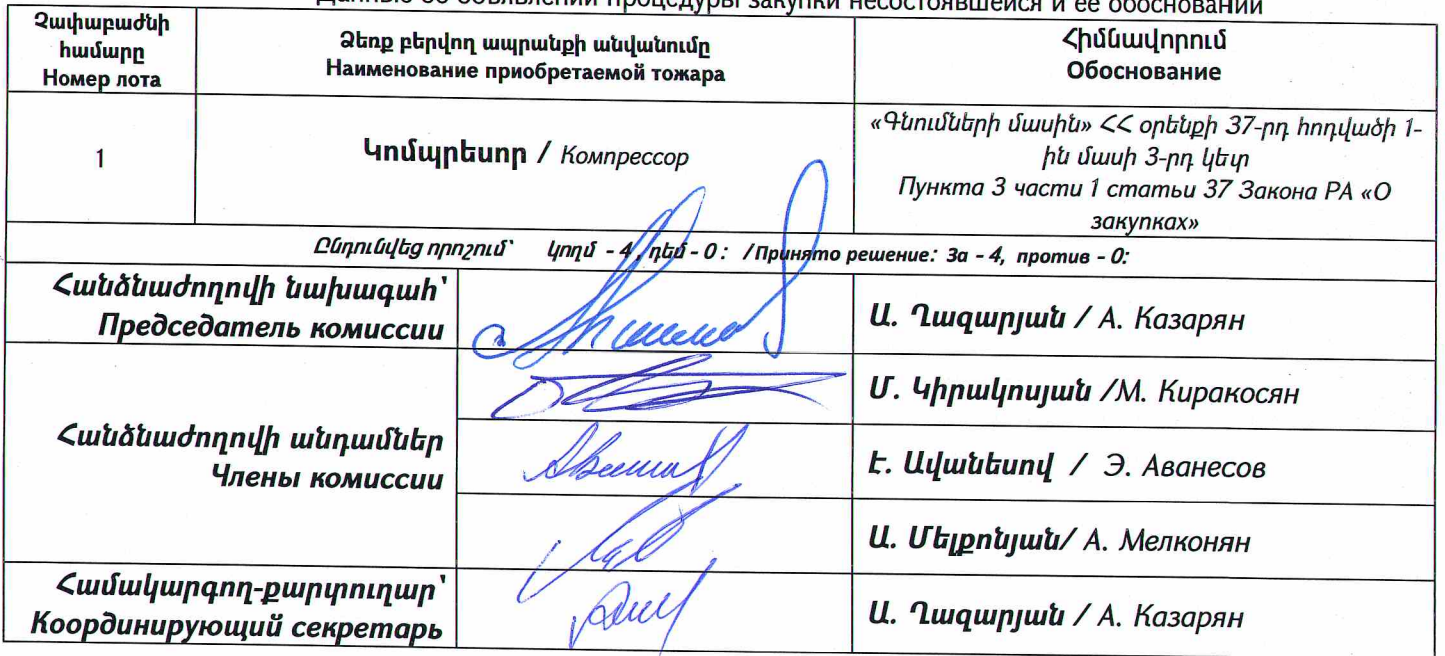 Данные об объявлении процедуры закупки несостоявшейся и ее обосновании
Չափաբաժնի
համարը
Номер лота
Ձեռք բերվող ապրանքի անվանումը
Наименование приобретаемой тожара
Հիմնավորում
Обоснование
1
Կոմպրեսոր / Компрессор
«Գնումների մասին» ՀՀ օրենքի 37-րդ հոդվածի 1-
ին մասի 3-րդ կետ
Пункта 3 части 1 статьи 37 Закона РА «О
закупках»
Ընդունվեց որոշում՝ կողմ - 4, դեմ - 0 : /Принято решение: За - 4, против - 0:
Հանձնաժողովի նախագահ՝
Председатель комиссии
Ա. Ղազարյան / А. Казарян
Հանձնաժողովի անդամներ
Члены комиссии
Մ. Կիրակոսյան /М. Киракосян
Է. Ավանեսով / Э. Аванесов
Ա. Մելքոնյան/ А. Мелконян
Համակարգող-քարտուղար՝
Координирующий секретарь
Ա. Ղազարյան / А. Казарян